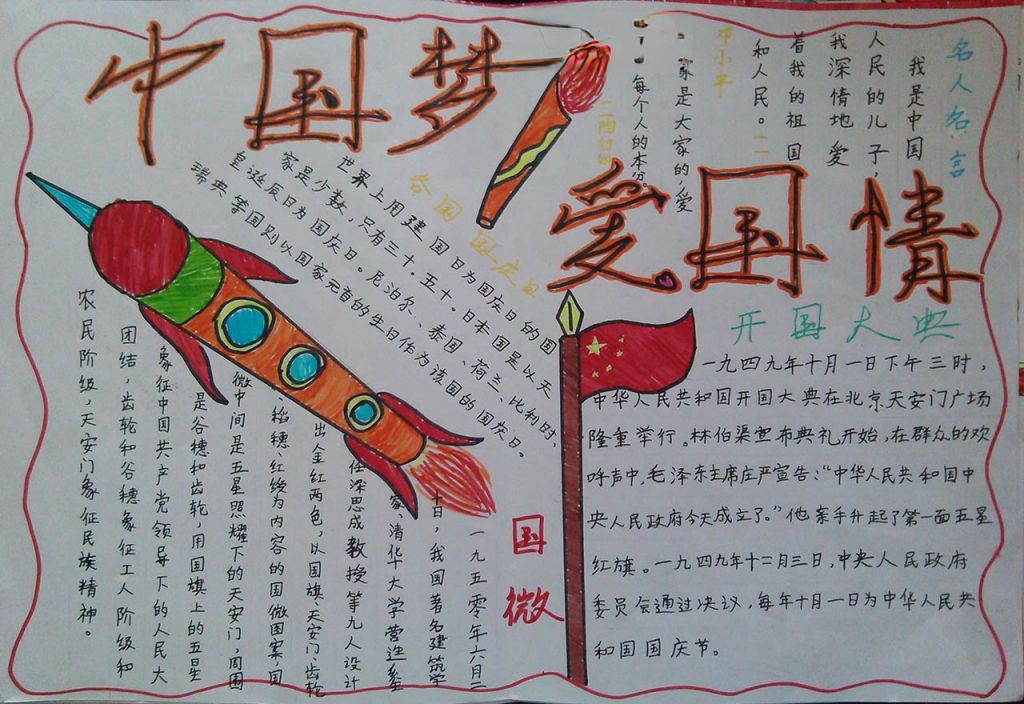 中国梦
爱国情
名人名言
我是中国
人民的儿子，
我深情地爱
着我的祖国
和人民。——
邓小平
家是大家的，爱
每个人的本分。
各国
国庆日
世界上用建国日为国庆日的国
家是少数，只有三十。五十。日本国是以天
皇诞辰日为国庆日。尼泊尔、泰国、荷兰、比利时，
瑞典等国则以国家元首的生日作为该国的国庆日。
开国大典
一九四九年十月一日下午三时，
中华人民共和国开国大典在北京天安门广场
隆重举行。林伯渠宣布典礼开始，在群众的欢
呼声中，毛泽东主席庄严宣告：“中华人民共和国中
央人民政府今天成立了。”他亲手升起了第一面五星
红旗。一九四九年十二月三日，中央人民政府
委员会通过决议，每年十月一日为中华人民共
和国国庆节。
国微
一九五零年六月二
十日，我国著名建筑学
家、清华大学营造系
任深思成教授等九人设计
出金红两色，以国旗、天安门、齿轮
、稻穗、红绶为内容的国微图案，国
微中间是五星照耀下的天安门，周围
是谷穗和齿轮，用国旗上的五星
象征中国共产党领导下的人民大
团结，齿轮和谷穗象征工人阶级和
农民阶级，天安门象征民族精神。